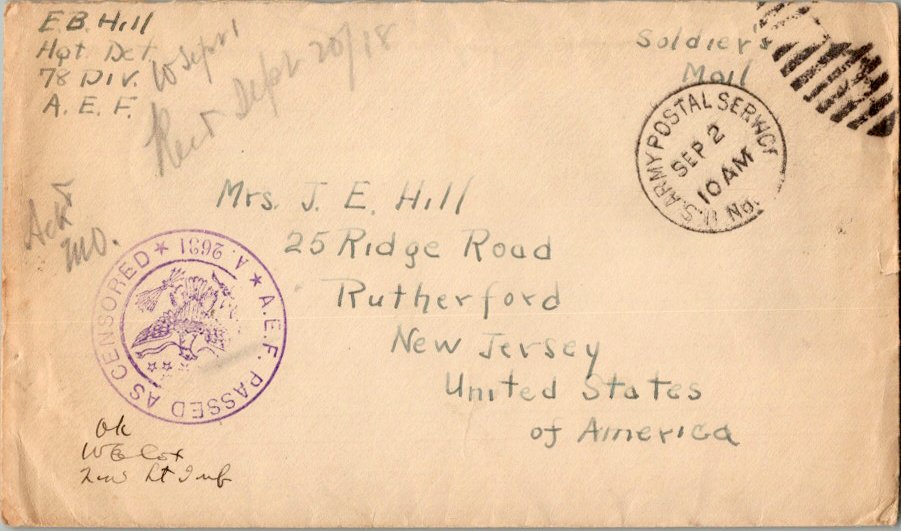 E. B. Hill
Hqt. Det.
78 Div.
A. E. F.
W Sept 1
Rec't Sept 20/18
Soldier's
Mail
U.S. ARMY POSTAL SERVICE
SEP 2
10 AM
No.
Ack
Mo.
Mrs. J. E. Hill
25 Ridge Road
Rutherford
New Jersey
United States
of America
A.E.F. PASSED AS CENSORED
A. 2631
Ok
Lt Inf